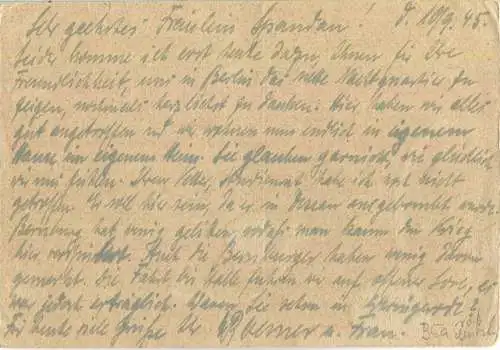 Sehr geehrtes Fräulein Spandau! d. 10/9. 45.
Leider komme ich erst heute dazu, Ihnen für Ihre
Freundlichkeit, uns in Berlin das nette Nachtquartier zu
zeigen, nochmals herzlichst zu danken. Hier haben wir alles
gut angetroffen und wir wohnen nun endlich in eigenem
Hause im eigenem Heim. Sie glauben garnicht, wie glücklich
wir uns fühlen. Ihren Vetter, habe ich noch nicht
getroffen. Er soll hier sein, da er in Dessau ausgebombt wurde.
Bernburg hat wenig gelitten, sodaß man kaum den Krieg
hier verspürt. Auch die Bernburger haben wenig davon
gemerkt. Die Fahrt bis Halle fuhren wir auf offener Lore, es
war jedoch erträglich. Waren Sie schon in
Für heute viele Grüße Ihr u. Frau.